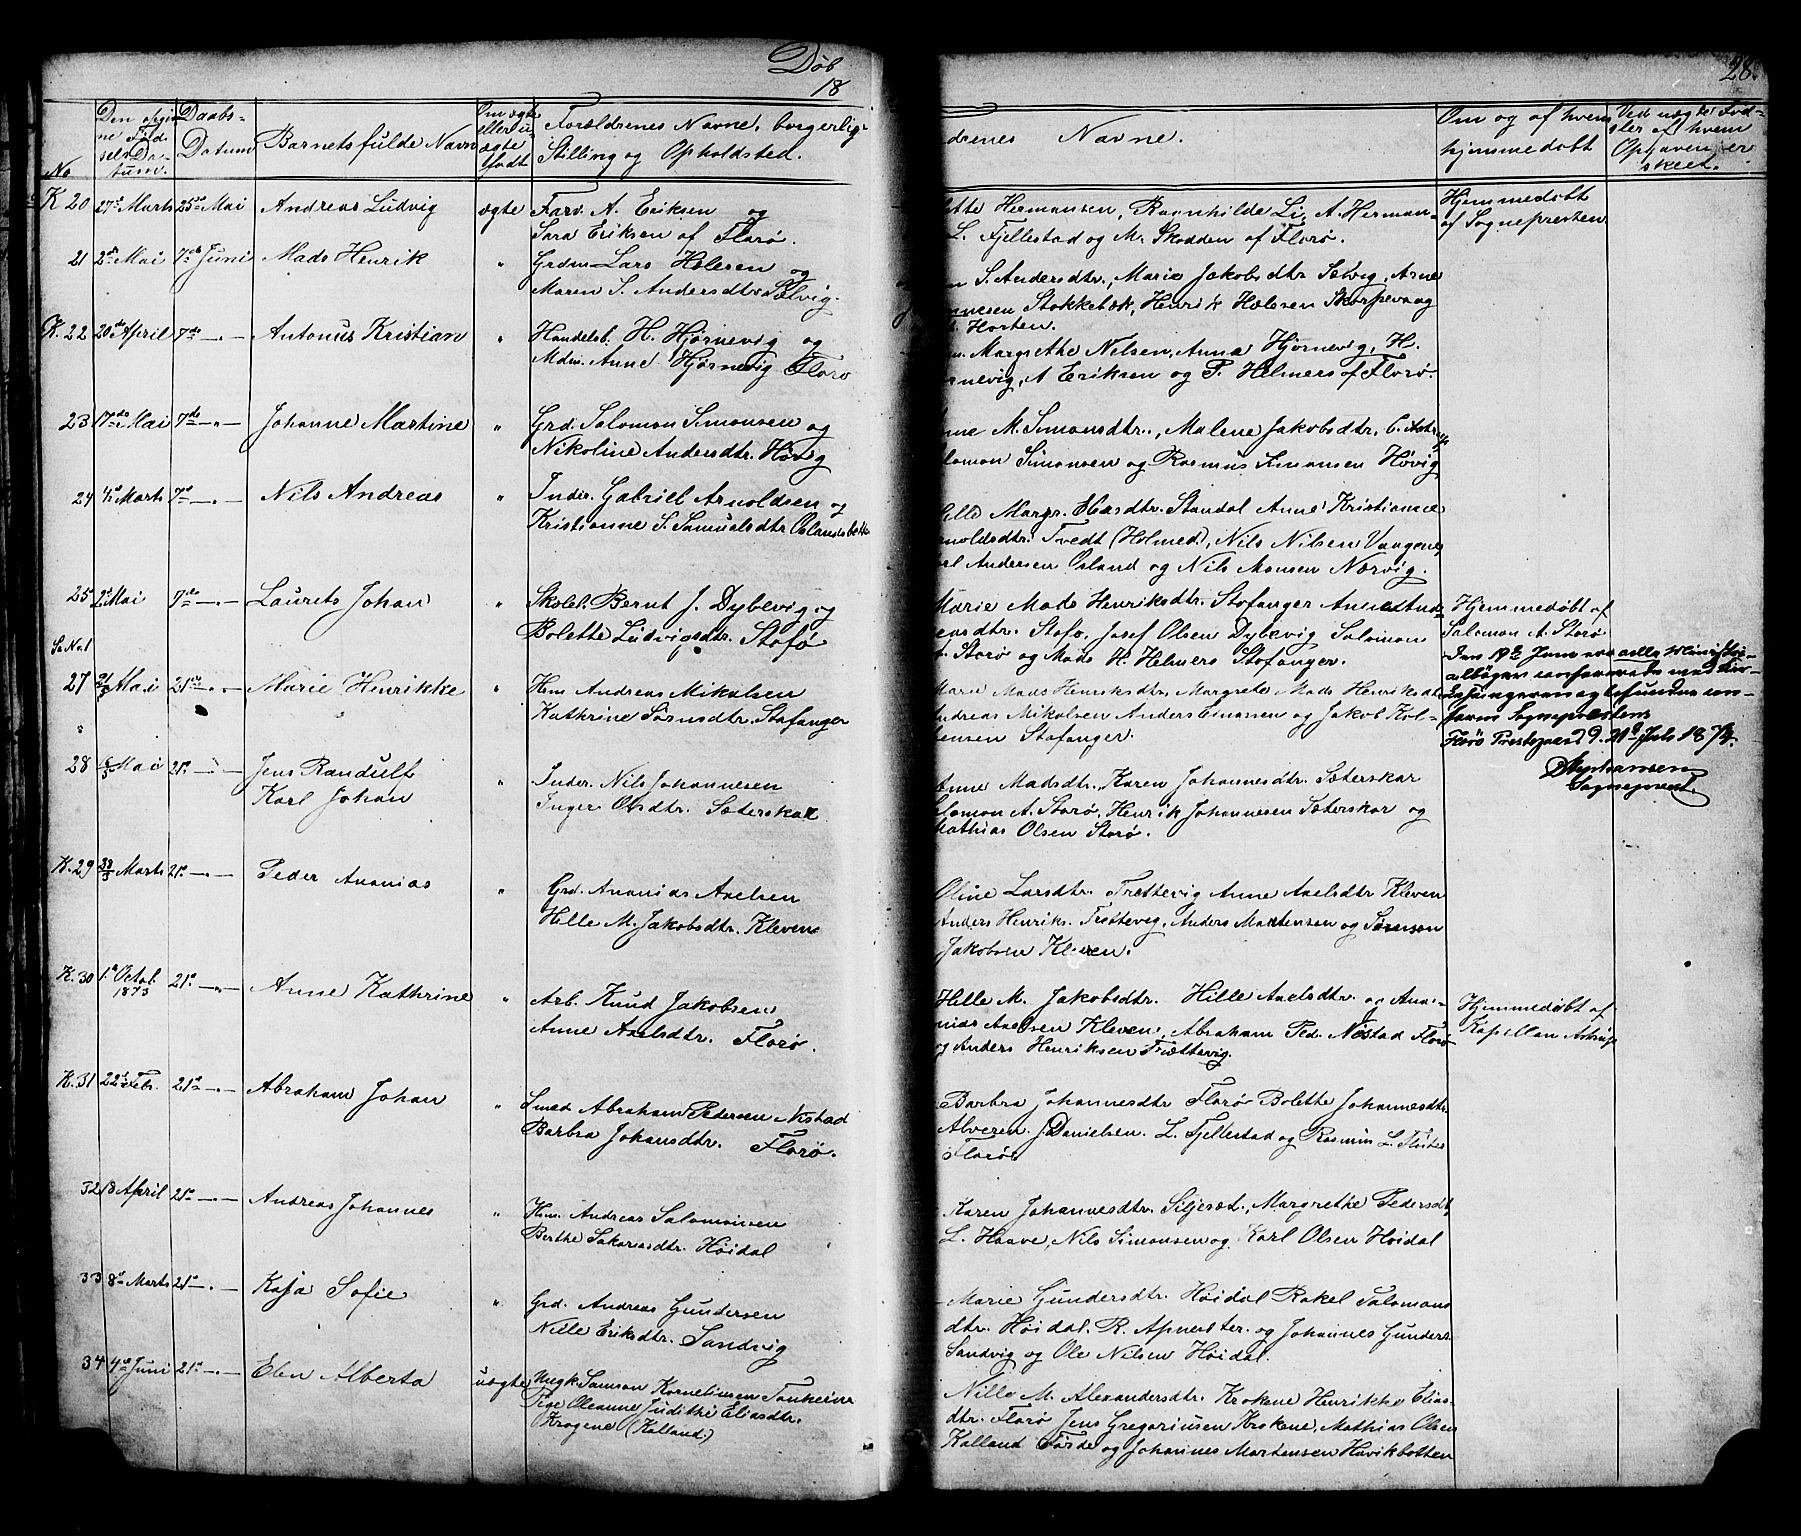 Døb
18
28.
No
Den Fødselsdatum.
Daabs-
Datum
Barnets fulde Navn
Om ægte eller uægte født
Forældrenes Navne, borgerlig-
Stilling og Opholdsted.
drenes Navne.
Om og af hvem
hjemmedøbt
Ved uægte Fød-
sler af hvem
Opgaven er
skeet.
K 20 27de Marts 25de Mai Andreas Ludvig ægte Farv. A. Eriksen og
Sara Eriksen af Florø.
lette Hermansen, Ragnhilde Li, A. Herman-
L. Fjellestad og M. Skodden af Florø.
Hjemmedøbt
af Sognepresten
21 2den Mai 7de Juni Mads Henrik " Grdm. Lars Helesen og
Maren S. Andersdtr. Sølvig.
n S. Andersdtr., Marie Jakobsdtr Sølvig, Arne
nnesen Stokkebæk, Henrik Hælesen Skorpen og
Horten.
K. 22 20de April 7de -"- Antonus Kristian " Handelsb. H. Hjørnevig og
Mdm. Anne Hjørnevig Florø
Margrethe Nelsen, Anna Hjørnevig, H.
rnevig, A Eriksen og P. Helmers af Florø.
23 17de Mai 7de -"- Johanne Martine " Grd. Salomon Simonsen og
Nikoline Andersdtr. Høvig
nne M. Simonsdtr., Malene Jakobsdtr,
lomon Simonsen og Rasmus Simonsen Høvig
24 Marts 7de -"- Nils Andreas " Inder. Gabriel Arnoldsen og
Kristianne S. Samuelsdtr Oslandsbotten
Hille Margr. Hansdtr. Standal Anne Kristianne
noldsdtr. Tvedt (Holmed), Nils Nilsen Vangene,
Andersen Osland og Nils Monsen Nærvig.
25 Mai 7de -"- Laurits Johan " Skolel. Bernt J. Dybevig og
Bolette Ludvigsdtr. Stofø
Marie Mads Henriksdtr. Stofanger
ensdtr. Stofø, Josef Olsen Dybevig Salomon
Storø og Mads H. Helmers Stofanger.
Hjemmedøbt af
Salomon A. Storø
Se No. 1
27 Mai 21de -"- Marie Henrikke " Hm. Andreas Mikalsen
Kathrine Sørnsdtr. Stofanger
Marie Mads Henriksdtr., Margrete Mads Henriksdtr
Andreas Mikalsen Anders Emansen og Jakob Kol-
bensen Stofanger.
Den 19de Juni
Sogneprestens
Florø Prestegaard d. 21de Juli 1874.
Sogneprest.
28 Mai 21de Jens Randulf
Karl Johan
" Inder. Nils Johannesen
Inger Olsdtr. Sæterskar
Anne Madsdtr., Karen Johannesdtr. Sæterskar
Salomon A. Storø, Henrik Johannesen Sæterskar og
Mathias Olsen Storø.
K. 29 Marts 21de -"- Peder Ananias " Grd. Ananias Axelsen
Hille M. Jakobsdtr. Kleven
Oline Larsdtr. Trættevig Anne Axelsdtr Kleven
Anders Henriks. Trættevig, Anders Martensen og Sørnson
Jakobsen Kleven.
K. 30 1ste Octob. 1873 21de -"- Anne Kathrine " Arb. Knud Jakobsen
Anne Axelsdtr. Florø.
Hille M. Jakobsdtr. Hille Axelsdtr. og Ana-
nias Axelsen Kleven, Abraham Ped. Nøstad Florø
og Anders Henriksen Trættevig.
Hjemmedøbt af
Kapellan Astrup
K. 31 22de Febr. 21de -"- Abraham Johan " Smed Abraham Pedersen Nøstad
Barbra Johansdtr. Florø.
Barbra Johannesdtr Florø Bolette Johannesdtr.
Alveren. J Danielsen. L. Fjellestad og Rasmus L.
Florø
32 18 April 21de -"- Andreas Johannes " Hm. Andreas Salomonsen
Berthe Sakariasdtr. Høidal
Karen Johannesdtr. Siljesæt., Margrethe Pedersdtr
L. Haave, Nils Simonsen og Karl Olsen Høidal
33 8de Marts 21de -"- Kaja Sofie " Grd. Andreas Gundersen
Nille Eriksdtr. Sandvig
Marie Gundersdtr. Høidal Rakel Salomons
dtr. Høidal. R. Apnesæter. og Johannes Gunders.
Sandvig og Ole Nilsen Høidal.
34 4de Juni 21de -"- Elen Alberta uægte Ungk. Samson Korneliusen Tonheim
Pige Oleanne Judithe Eliasdtr.
Krogene (Kalland.)
Nille M. Alexandersdtr. Krokene Henrikke Elias
dtr. Florø Jens Gregoriusen Krokene, Mathias Olsen
Kalland Førde og Johannes Martensen Høvikbotten